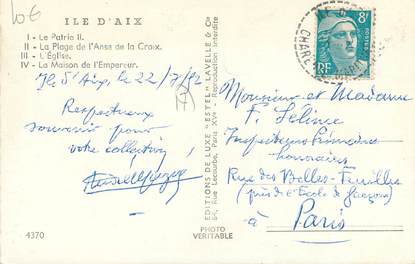 10€
ILE D'AIX
I - Le Patria II.
II - La Plage de l'Anse de la Croix.
III - L'Église.
IV - La Maison de l'Empereur.
Ile d'Aix, le 22/7/52
(17)
Respectueux
souvenir pour
votre collection,
4370
EDITIONS DE LUXE "ESTEL" LAVELLE & Cie
84, Rue Lecourbe, Paris XVe - Reproduction Interdite
PHOTO
VERITABLE
8F
POSTES
RF
Monsieur et Madame
F.
Inspecteur Primaire
honoraire
Rue des Belles-Feuilles
(près de l'Ecole de garçons)
à Paris